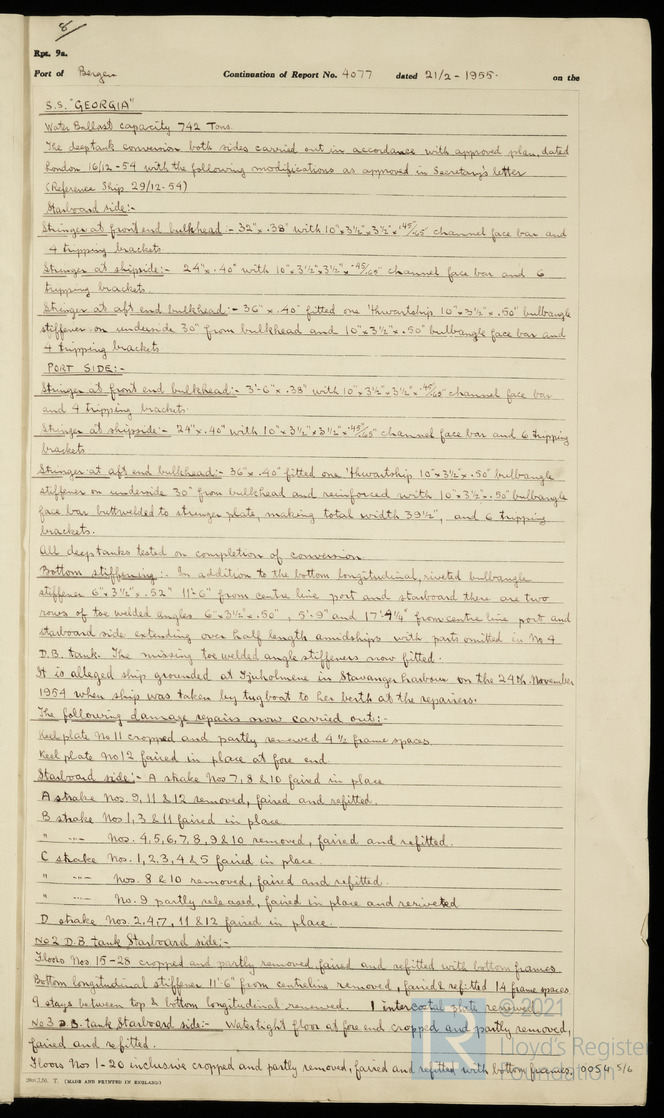 8
Rpt. 9a.
Port of Bergen Continuation of Report No. 4077 dated 21/2 - 1955. on the
S.S. "GEORGIA"
Water Ballast capacity 742 Tons.
The deeptank conversion both sides carried out in accordance with approved plan, dated
London 16/12-54 with the following modifications as approved in Secretary's letter
(Reference Ship 29/12-54)
Starboard side:-
Stringer at front end bulkhead:- 32" x .38" with 10" x 3½" x 3½" x .45/.65" channel face bar and
4 tripping brackets
Stringer at shipside:- 24" x .40" with 10" x 3½" x 3½" x .45/.65" channel face bar and 6
tripping brackets.
Stringer at aft end bulkhead:- 36" x .40" fitted one 'thwartship 10" x 3½" x .50" bulbangle
stiffener on underside 30" from bulkhead and 10" x 3½" x .50" bulbangle face bar and
4 tripping brackets
PORT SIDE:-
Stringer at front end bulkhead:- 3'-6" x .38" with 10" x 3½" x 3½" x .45/.65" channel face bar
and 4 tripping brackets.
Stringer at shipside:- 24" x .40" with 10" x 3½" x 3½" x .45/.65" channel face bar and 6 tripping
brackets
Stringer at aft end bulkhead:- 36" x .40" fitted one 'thwartship 10" x 3½" x .50" bulbangle
stiffener on underside 30" from bulkhead and reinforced with 10" x 3½" x .50" bulbangle
face bar buttwelded to stringer plate, making total width 39½", and 6 tripping
brackets.
All deeptanks tested on completion of conversion
Bottom stiffening:- In addition to the bottom longitudinal, riveted bulbangle
stiffener 6" x 3½" x .52" 11'-6" from centre line port and starboard there are two
rows of toe welded angles 6" x 3½" x .50", 5'-9" and 17'-4¼" from centre line port and
starboard side extending over half length amidships with parts omitted in No 4
D.B. tank. The missing toe welded angle stiffeners now fitted.
It is alleged ship grounded at Tjuholmene in Stavanger harbour on the 24th November
1954 when ship was taken by tugboat to her berth at the repairers.
The following damage repairs now carried out:-
Keel plate No 11 cropped and partly renewed 4½ frame spaces
Keel plate No 12 faired in place at fore end
Starboard side:- A strake Nos 7, 8 & 10 faired in place
A strake Nos. 9, 11 & 12 removed, faired and refitted.
B strake Nos 1, 3 & 11 faired in place
" -"- Nos. 4, 5, 6, 7, 8, 9 & 10 removed, faired and refitted.
C strake Nos. 1, 2, 3, 4 & 5 faired in place.
" -"- Nos. 8 & 10 removed, faired and refitted.
" -"- No. 9 partly released, faired in place and reriveted
D strake Nos. 2, 4, 7, 11 & 12 faired in place.
No 2 D.B. tank Starboard side:-
Floors Nos. 15-28 cropped and partly removed, faired and refitted with bottom frames
Bottom longitudinal stiffener 11'-6" from centreline removed, faired & refitted 14 frame spaces
9 stays between top & bottom longitudinal renewed. 1 intercostal plate renewed
No 3 D.B. tank Starboard side:- Watertight floor at fore end cropped and partly removed,
faired and refitted.
Floors Nos 1-20 inclusive cropped and partly removed, faired and refitted with bottom frames.
0054 5/6
(MADE AND PRINTED IN ENGLAND)
© 2021
Lloyd's Register
Foundation